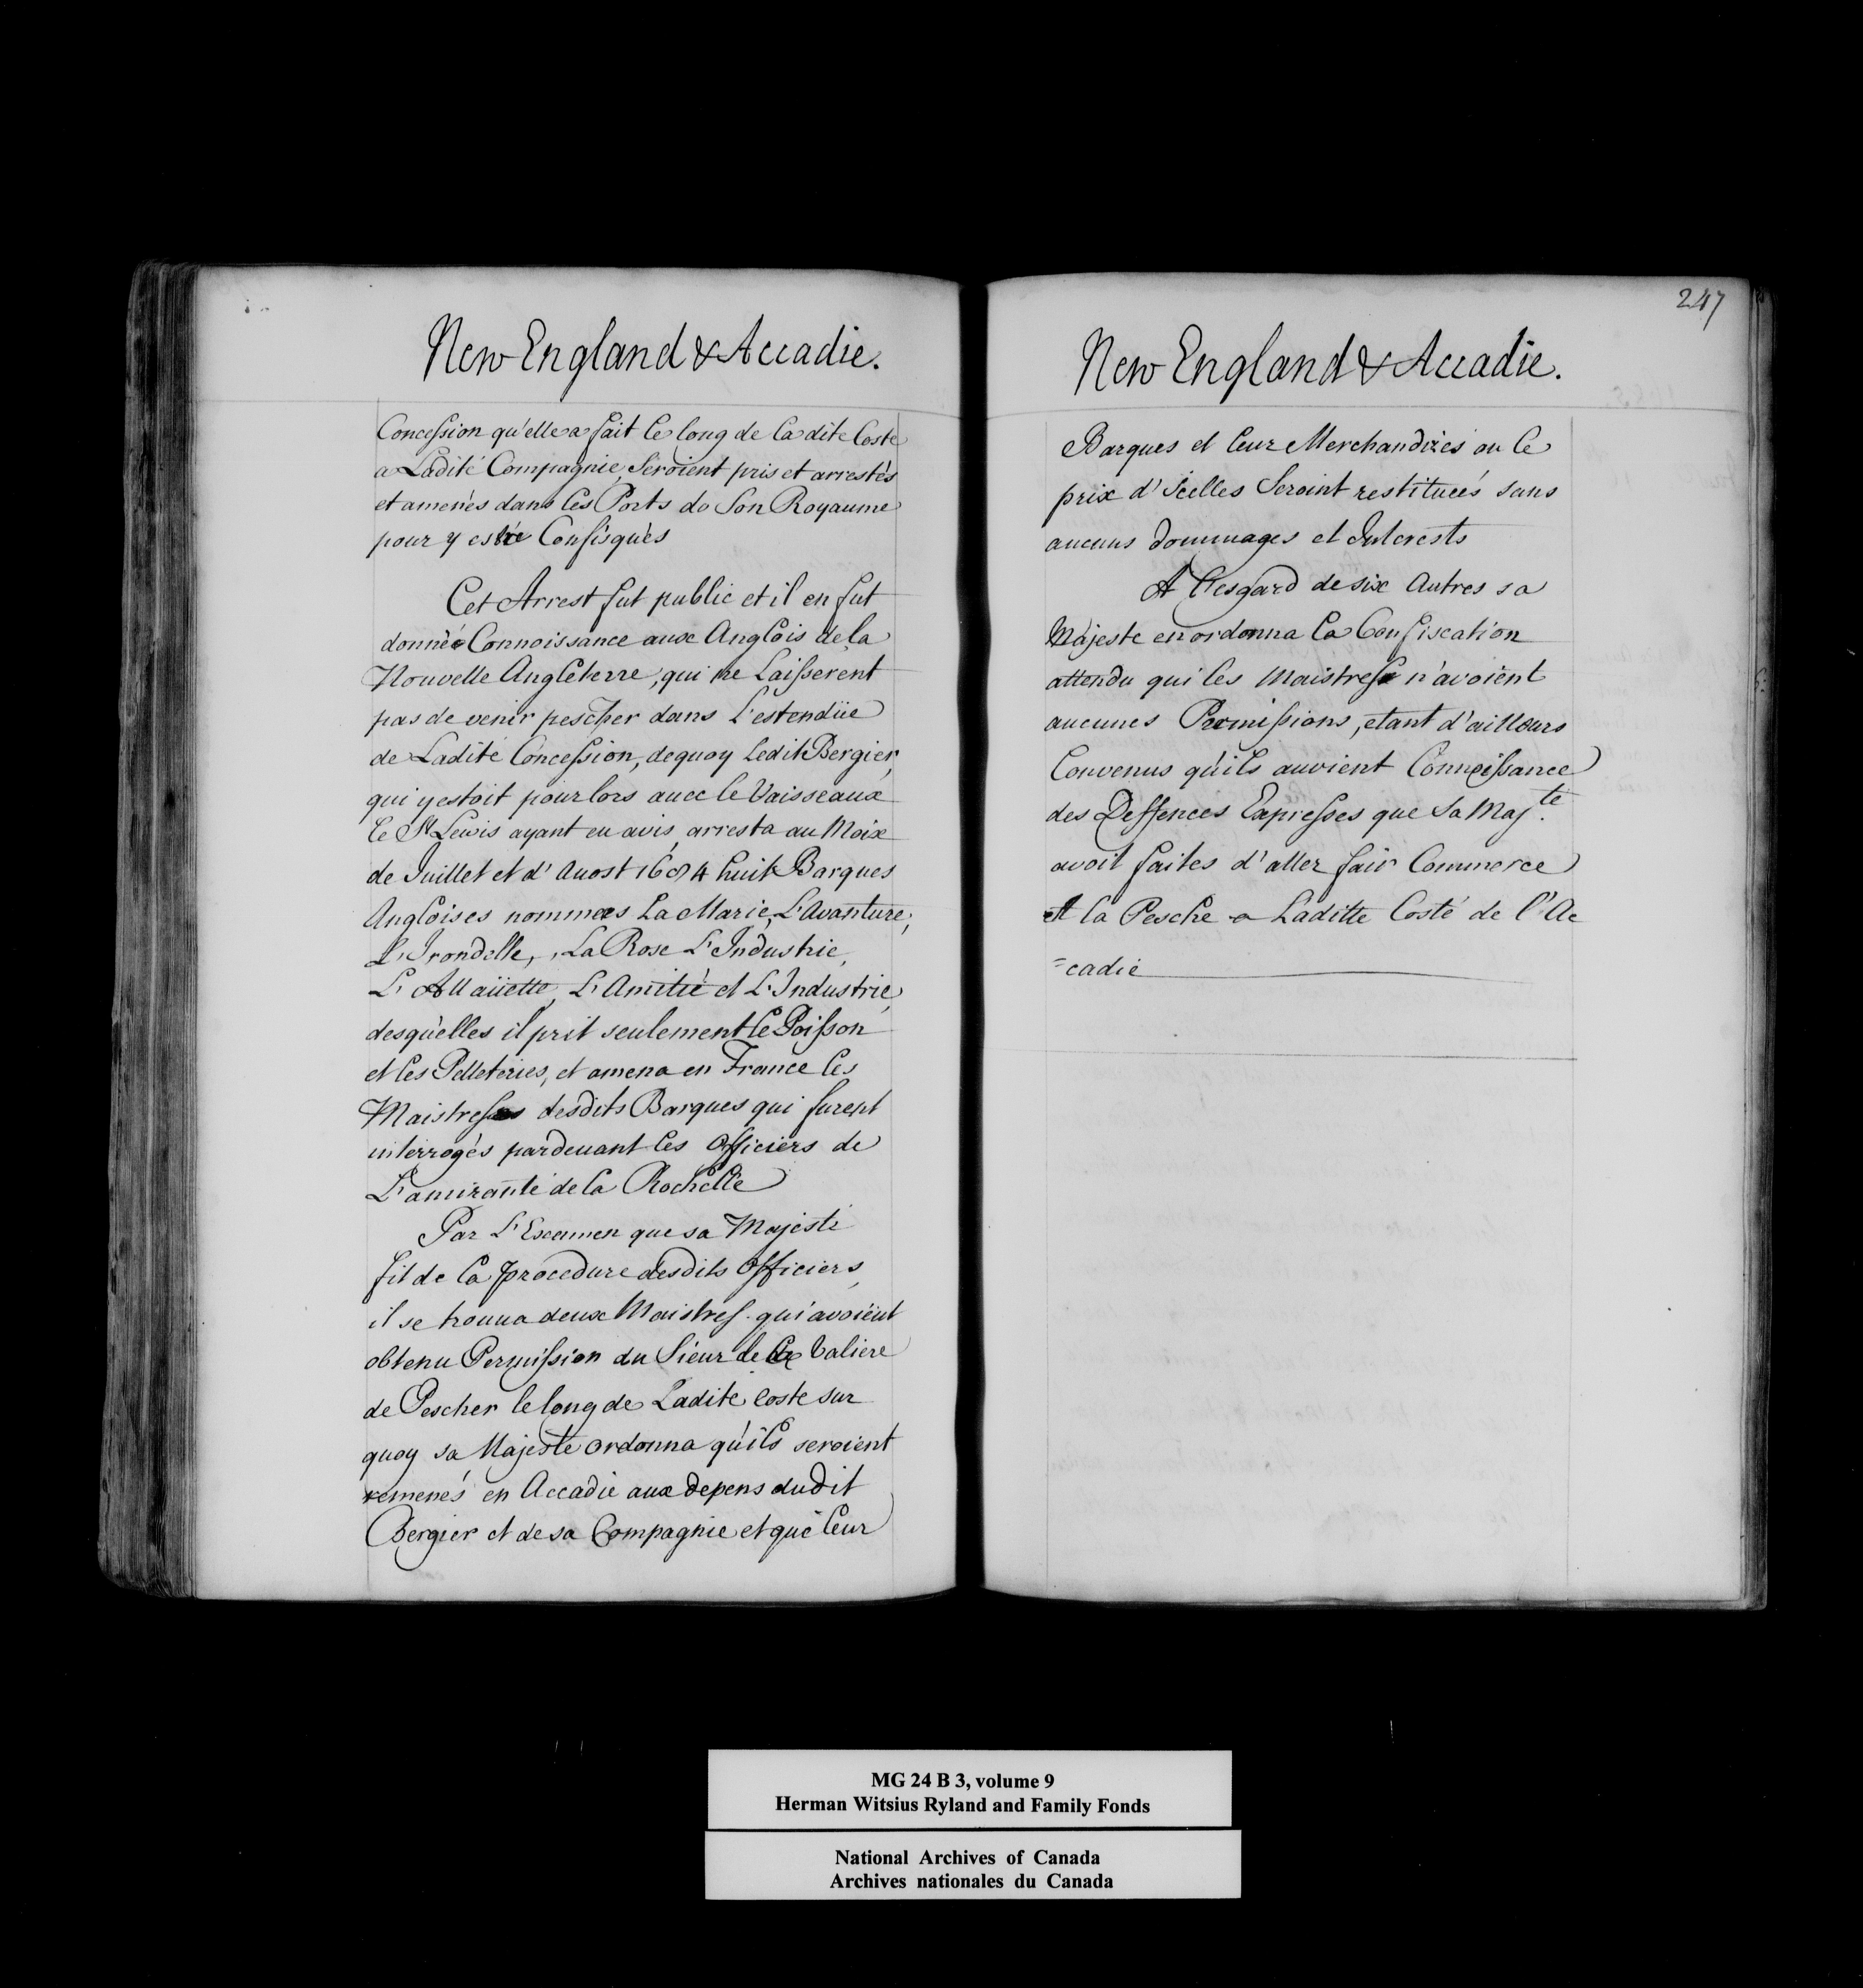 New England & Accadie.
Concession qu'elle a fait le long de la dite Coste
a Ladité Compagnie, Seroient pris et arrestés
et amenés dans les Ports de Son Royaume
pour y estre Confisqués
Cet Arrest fut public et il en fut
donnée Connoissance aux Anglois de la
Nouvelle Angleterre, qui ne Laisserent
pas de venir pescher dans L'estendüe
de Ladité Concession, dequoy Ledit Bergier,
qui y estoit pour lors avec le Vaisseaux
le St Lewis ayant eu avis, arresta au Moix
de Juillet et d'Auost 1684 huit Barques
Angloises nommeés La Marie, L'Avanture,
L'Irondelle, La Rose L'Industrie,
L'Allaüette, L'Amitié et L'Industrie,
desquelles il prit seulement le Poisson
et les Pelleteries, et amena en France les
Maistresses desdits Barques qui furent
interrogés pardeuant les Officiers de
L'amirauté de la Rochelle
Par L'Examen que sa Majesté
fit de la procedure desdits Officiers,
il se trouua deux Maistres qui avoient
obtenu Permission du Sieur de la Valiere
de Pescher le long de Ladite Coste sur
quoy sa Majesté ordonna qu'ils seroient
remenés en Accadie aux depens dudit
Bergier et de sa Compagnie et que leur
247
New England & Accadie.
Barques et leur Merchandises ou le
prix d'Icelles Seroint restituées sans
aucuns dommages et Interests
A l'esgard de six Autres sa
Majeste en ordonna la Confiscation
attendu qui les Maistres n'avoient
aucunes Permissions, etant d'ailleurs
Convenus qu'ils auvient Connoissance
des Deffences Expresses que Sa Majte.
avoit faites d'aller fair Commerce
et la Pesche a Laditte Costé de l'Ac
=cadie
MG 24 B 3, volume 9
Herman Witsius Ryland and Family Fonds
National Archives of Canada
Archives nationales du Canada